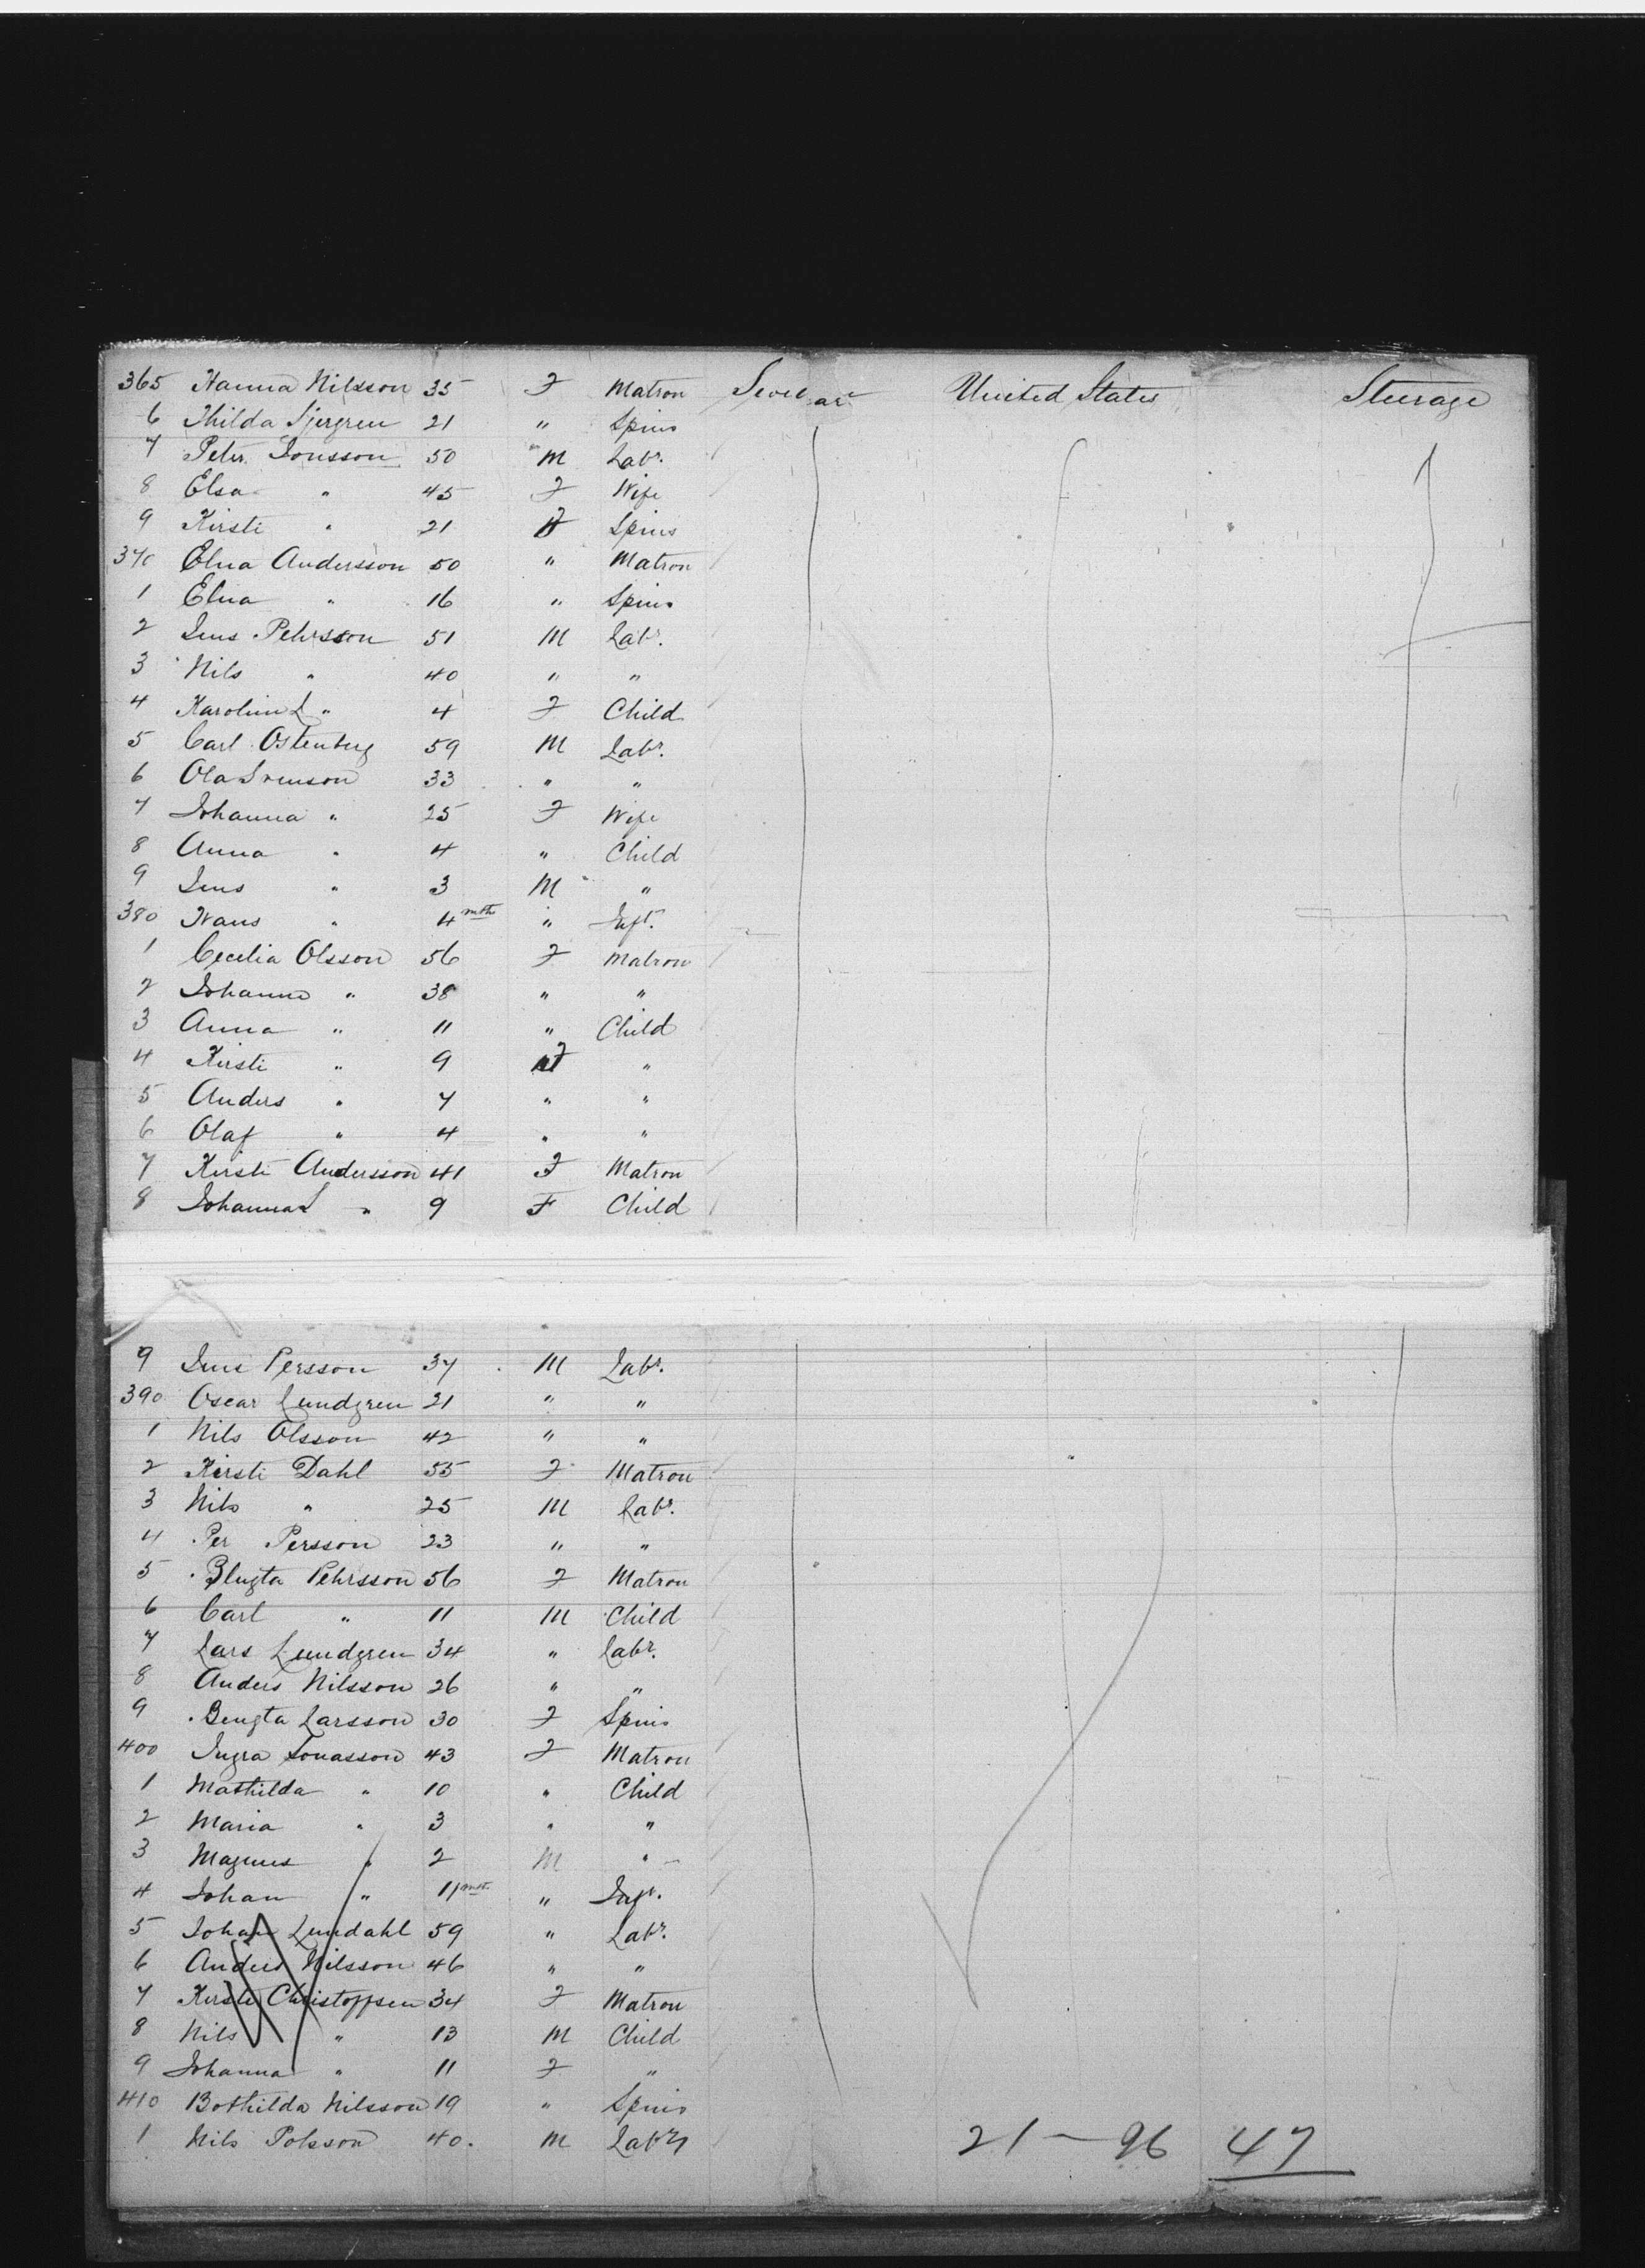 365 Hanna Nilsson 35 F Matron United States Steerage
6 Thilda Sjergren 21 " Spins
7 Peter Jonsson 50 M Labr.
8 Elsa " 45 F Wife
9 Kirsti " 21 F Spins
370 Elna Andersson 50 " Matron
1 Elna " 16 " Spins
2 Jens Pehrsson 51 M Labr.
3 Nils " 40 " "
4 Karolina " 4 F Child
5 Carl Ostenberg 59 M Labr.
6 Ola Svenson 33 " "
7 Johanna " 25 F Wife
8 Anna " 4 " Child
9 Jens " 3 M "
380 Hans " 4 mth " Inft.
1 Cecilia Olsson 56 F Matron
2 Johanna " 38 " "
3 Anna " 11 " Child
4 Kirsti " 9 F "
5 Anders " 7 " "
6 Olaf " 4 " "
7 Kirsti Andersson 41 F Matron
8 Johanna " 9 F Child
9 Jens Persson 37 M Labr.
390 Oscar Lundgren 21 " "
1 Nils Olsson 42 " "
2 Kirsti Dahl 55 F Matron
3 Nils " 25 M Labr.
4 Per Persson 23 " "
5 Pehrsson 56 F Matron
6 Carl " 11 M Child
7 Lars Lundgren 34 " Labr.
8 Anders Nilsson 26 " "
9 Bengta Larsson 30 F Spins
400 Ingra Jonasson 43 F Matron
1 Mathilda " 10 " Child
2 Maria " 3 " "
3 Magnus " 2 M "
4 Johan " 11 mth " Inft.
5 Johan Lundahl 59 " Labr.
6 Anders Nilsson 46 " "
7 Kirsti Christoffsen 34 F Matron
8 Nils " 13 M Child
9 Johanna " 11 F "
410 Bothilda Nilsson 19 " Spins
1 Nils Polsson 40. M Labr
21 — 96 47